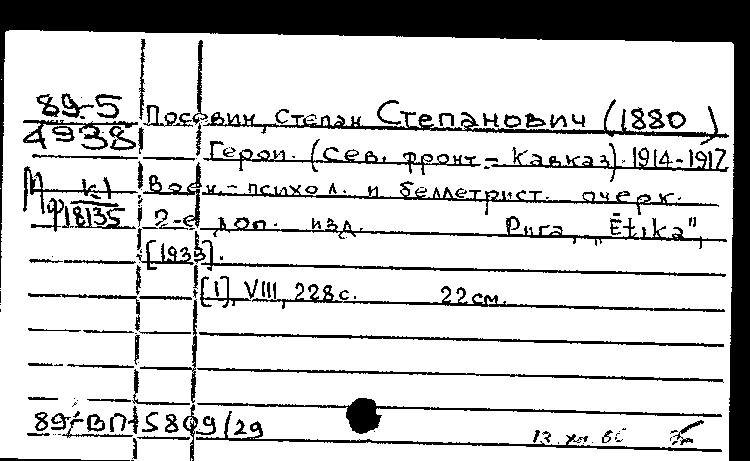 89-5
4938
Посевин, Степан Степанович (1880 )
Герои. (Сев. фронт - Кавказ). 1914-1917
Воен.-психол. и беллетрист. очерк.
Мф к1
18135
2-е доп. изд. Рига, "Ētika",
[1933].
[1], VIII, 228 с. 22 см.
89-ВП-5809/29